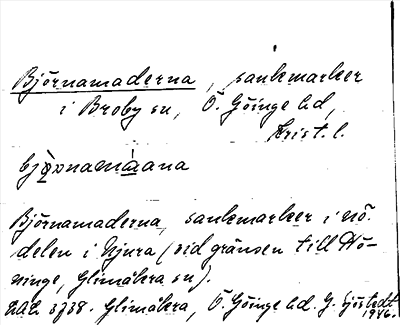 Björnamaderna, sankmarker
i Broby sn, Ö. Göinge hd,
Krist. l.
Björnamaderna, sankmarker i nö.
delen i Njura (vid gränsen till Hö-
ninge, Glimåkra sn).
LAL 3738. Glimåkra, Ö. Göinge hd. G. Sjöstedt
1946.